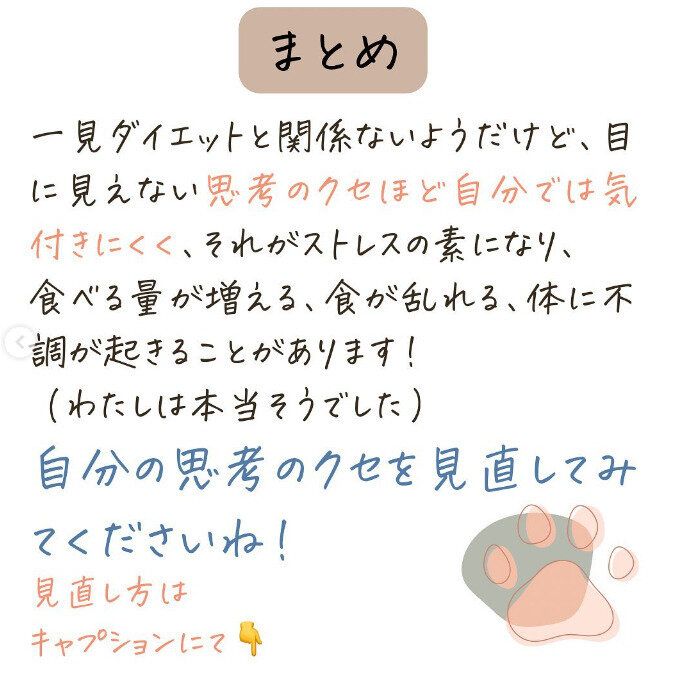 まとめ
一見ダイエットと関係ないようだけど、目
に見えない思考のクセほど自分では気
付きにくく、それがストレスの素になり、
食べる量が増える、食が乱れる、体に不
調が起きることがあります!
(わたしは本当そうでした)
自分の思考のクセを見直してみ
てくださいね!
見直し方は
キャプションにて👇